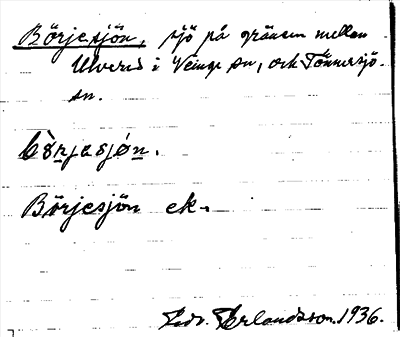 Börjesjön, sjö på gränsen mellan
Ulvered i Veinge sn, och Tönnersjö
sn.
bö̀rjesjøn.
Börjesjön ek.
Edv. Erlandsson. 1936.